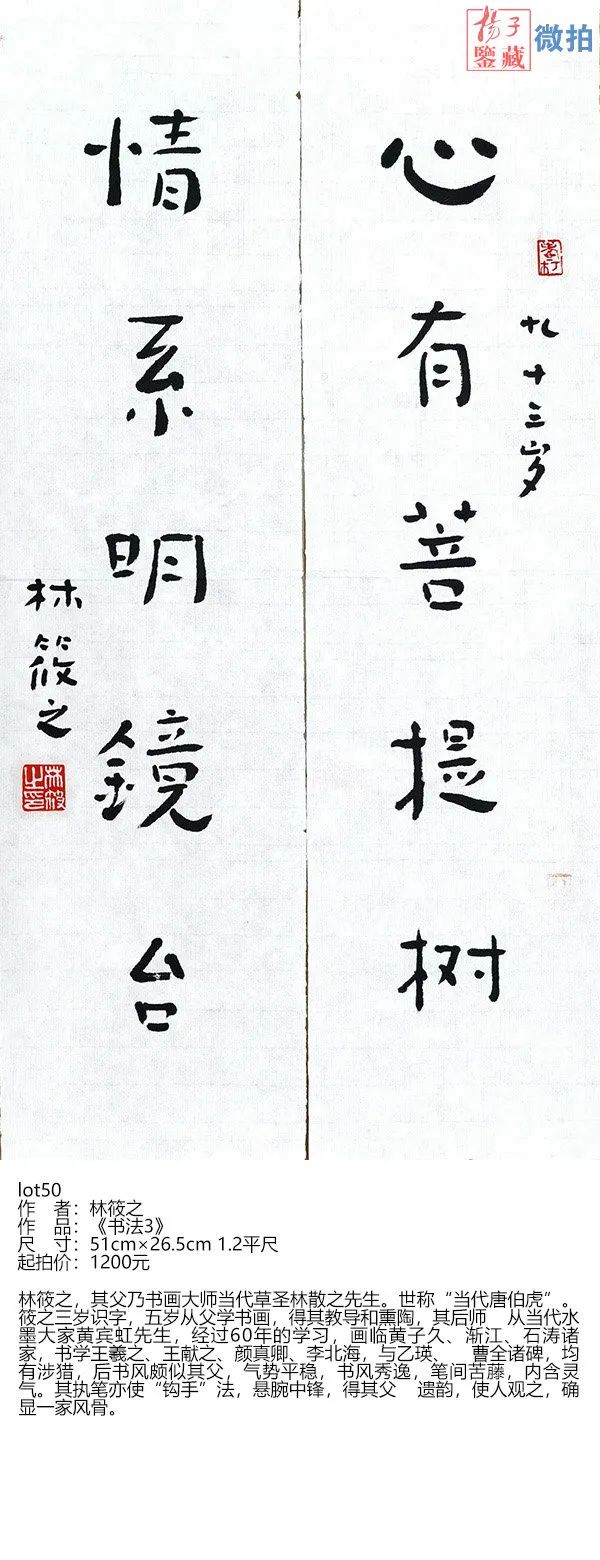 揚子
鑒藏
微拍
心有菩提树
九十三岁
情系明鏡台
林筱之
林筱
之印
lot50
作　者：林筱之
作　品：《书法3》
尺　寸：51cm×26.5cm 1.2平尺
起拍价：1200元
林筱之，其父乃书画大师当代草圣林散之先生。世称“当代唐伯虎”。
筱之三岁识字，五岁从父学书画，得其教导和熏陶，其后师　从当代水
墨大家黄宾虹先生，经过60年的学习，画临黄子久、渐江、石涛诸
家，书学王羲之、王献之、颜真卿、李北海，与乙瑛、　曹全诸碑，均
有涉猎，后书风颇似其父，气势平稳，书风秀逸，笔间苦藤，内含灵
气。其执笔亦使“钩手”法，悬腕中锋，得其父　遗韵，使人观之，确
显一家风骨。